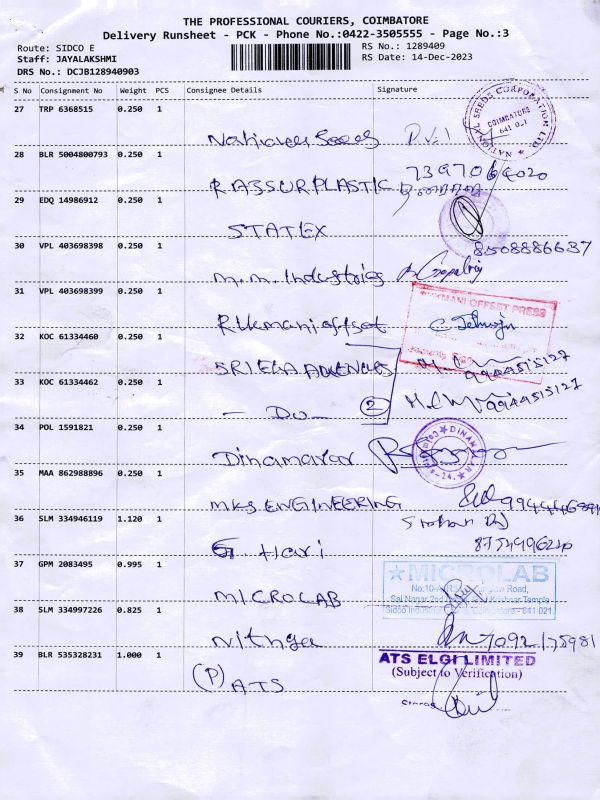 THE PROFESSIONAL COURIERS, COIMBATORE
Delivery Runsheet - PCK - Phone No.:0422-3505555 - Page No.:3
Route: SIDCO E
RS No.: 1289409
Staff: JAYALAKSHMI
RS Date: 14-Dec-2023
DRS No.: DCJB128940903
S No Consignment No Weight PCS Consignee Details Signature
27 TRP 6368515 0.250 1
NATIONAL SEEDS CORPORATION LTD.
COIMBATORE
641 021
28 BLR 5004800793 0.250 1
R ASSUR PLASTIC
29 EDQ 14986912 0.250 1
STATEX
8508886637
30 VPL 403698398 0.250 1
M.M. Industries
31 VPL 403698399 0.250 1
RUKMANI OFFSET PRESS
Rukmani offset
32 KOC 61334460 0.250 1
9944515127
33 KOC 61334462 0.250 1
- Do - 2
9944515127
34 POL 1591821 0.250 1
DINAMALAR
Dinamalar
35 MAA 862988896 0.250 1
MKS. ENGINEERING
36 SLM 334946119 1.120 1
G. Hari
37 GPM 2083495 0.995 1
MICROLAB
MICROLAB
38 SLM 334997226 0.825 1
Coimbatore - 641 021
Nithya
39 BLR 535328231 1.000 1
ATS ELGI LIMITED
(Subject to Verification)
(P) ATS